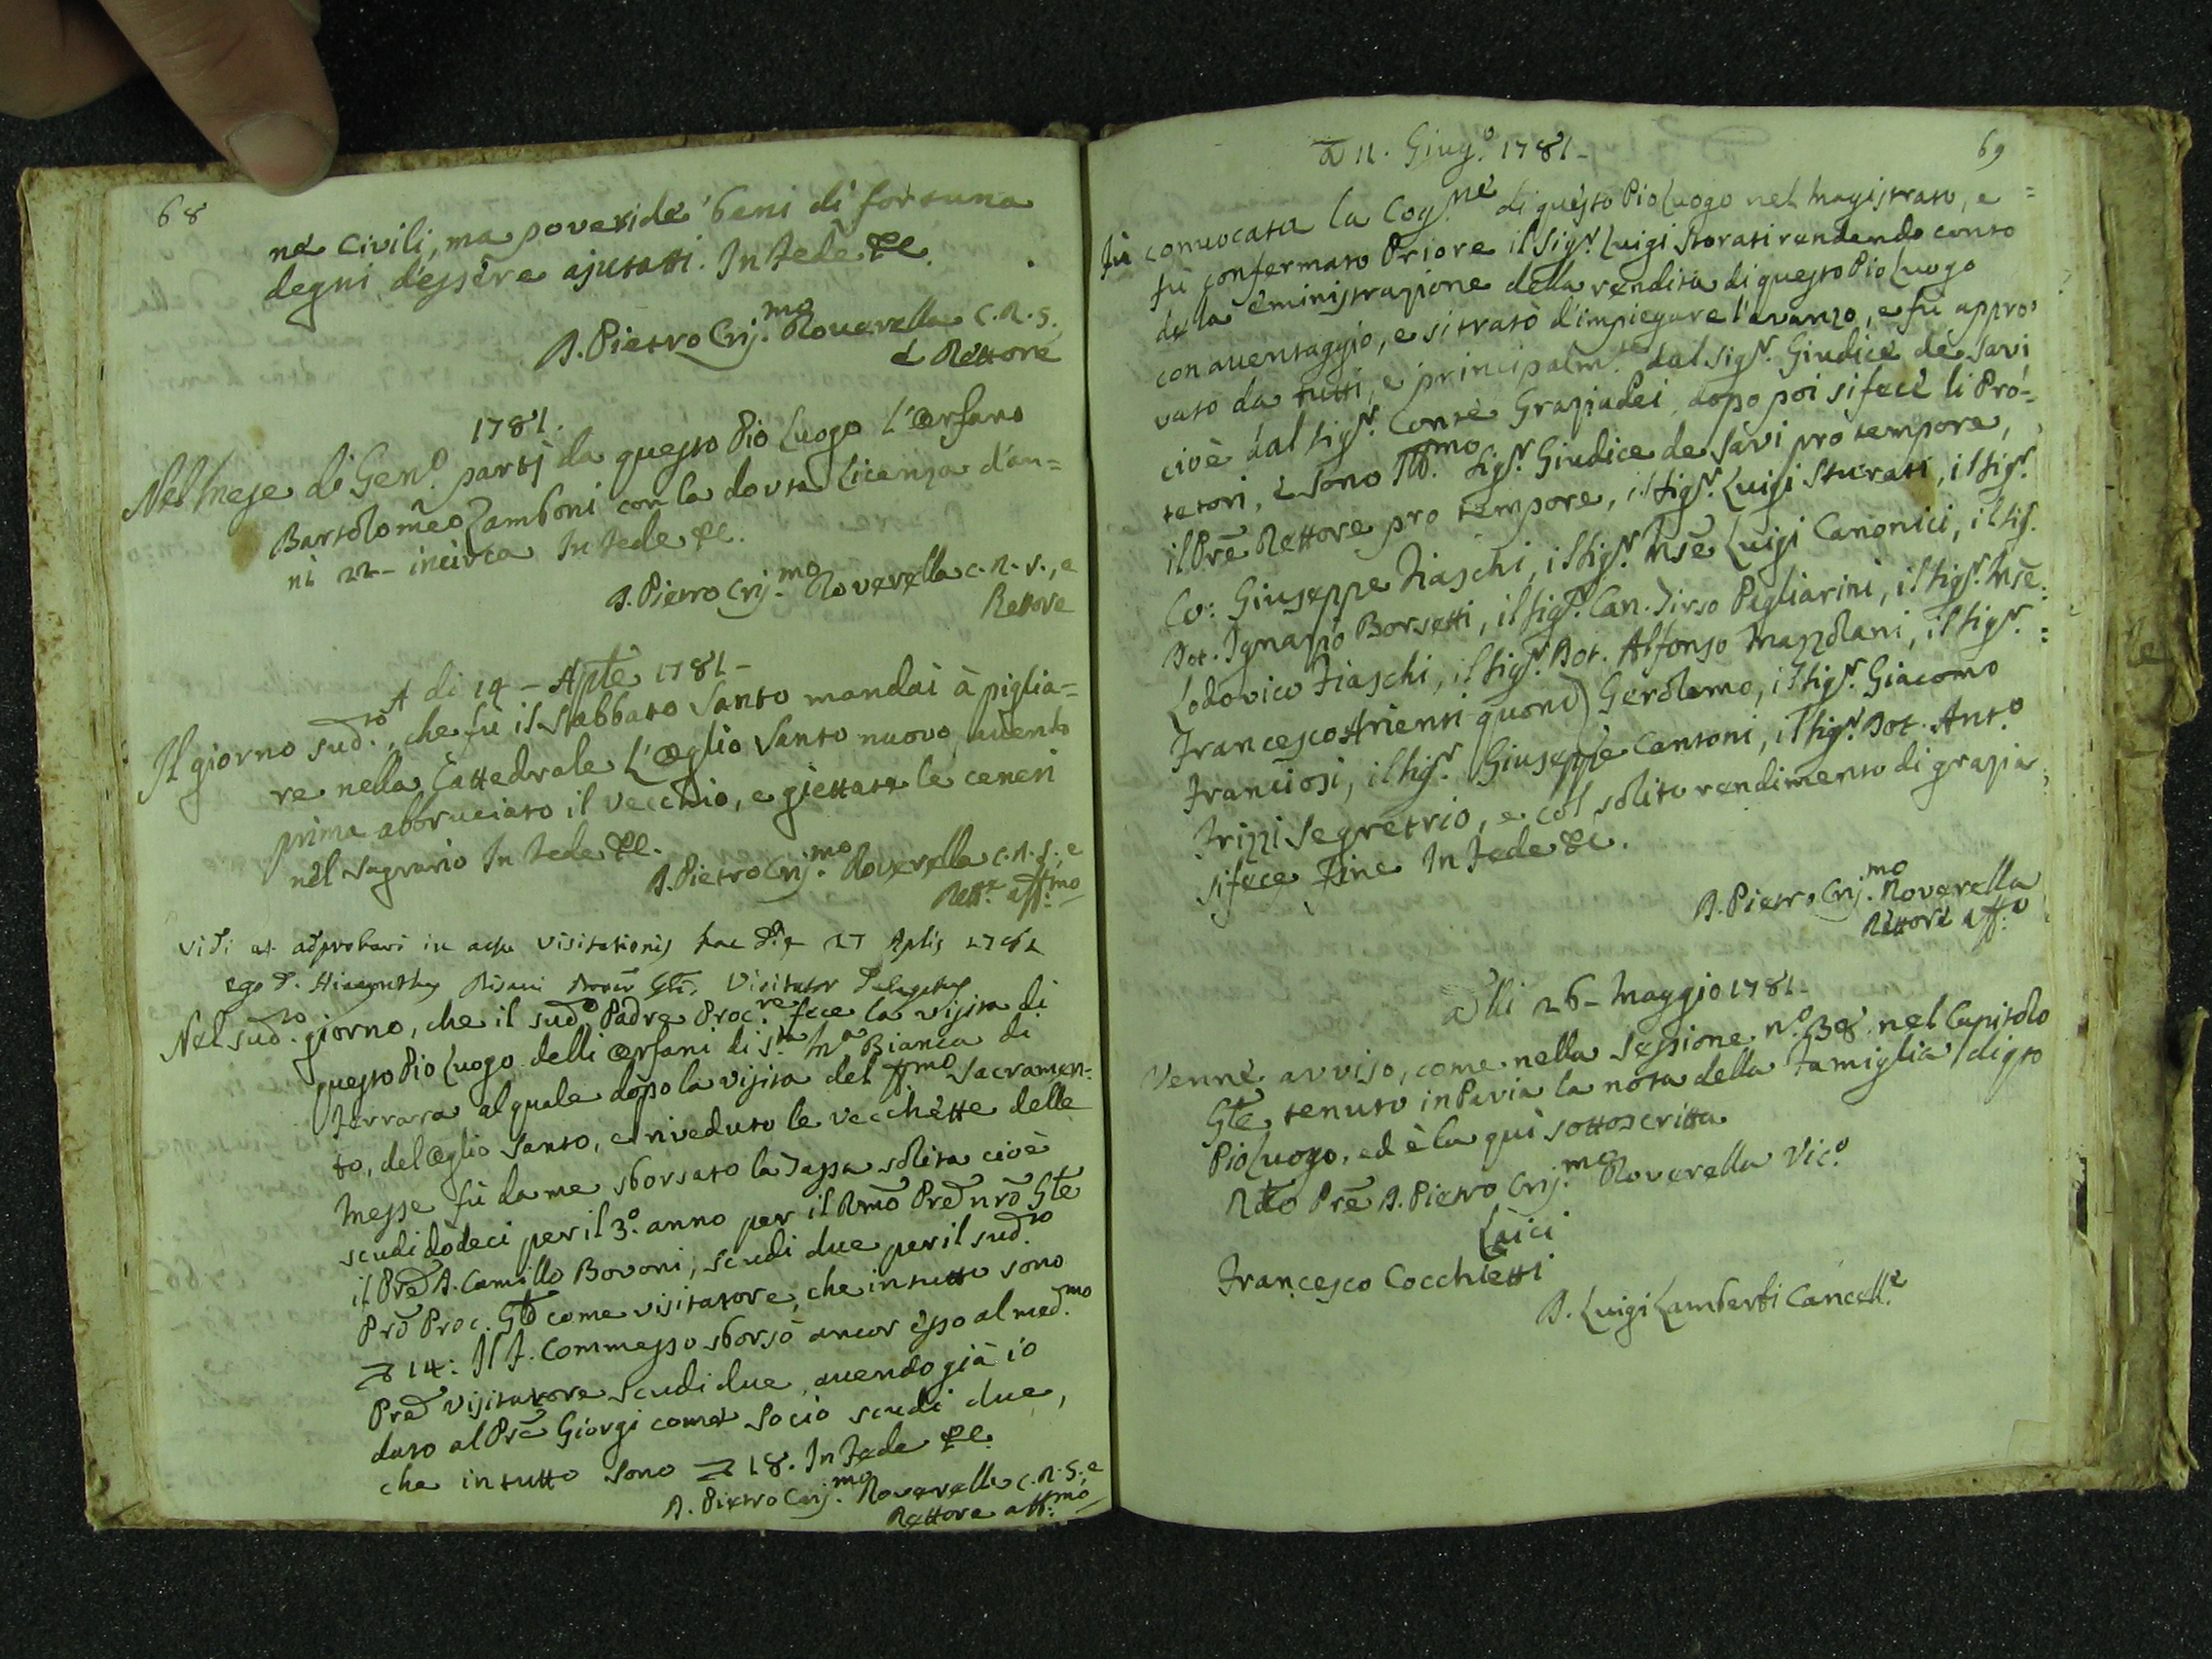 68
nè civili, ma poveri dè beni di fortuna
degni d'essere ajutatti. In fede &c.
D. Pietro Cris.mo Roverella C.R.S.
e Rettore
1781.
Nel mese di Gen.o partì da questo Pio Luogo l'Orfano
Bartolomeo Zamboni con la dovuta licenza d'an=
ni 22 - incirca In fede &c.
D. Pietro Cris.mo Roverella C.R.S., e
Rettore
A di 14 - Aple 1781 -
Il giorno sud.to, che fu il Sabbato Santo mandai à piglia=
re nella Cattedrale l'Oeglio Santo nuovo, avento
prima abbruciato il vecchio, e giettate le ceneri
nel sagrario In fede &c.
D. Pietro Cris.mo Roverella C.R.S., e
Rett.e aff.mo
Vidi et adprobavi in actu visitationis hac die 27 Aplis 1781
ego D. Hiacynthus Pisani Procr Glis Visitator Delegatus
Nel sud.to giorno, che il sud.o Padre Proc.re fece la visita di
questo Pio Luogo delli Orfani di S.ta M.a Bianca di
Ferrara al quale dopo la visita del SS.mo Sacramen=
to, del Oeglio Santo, e riveduto le vecchette delle
Messe fù da me sborsato la Tassa solita cioè
scudi dodeci per il 3.o anno per il Rmo Pre nro Gle
il Pre D. Camillo Bovoni, scudi due per il sud.to
Pre Proc. Gle come visitatore, che in tutto sono
14: Il F. Commesso sborsò ancor esso al med.mo
Pre Visitatore scudi due, avendo già io
dato al Pre Giorgi come Socio scudi due,
che in tutto sono 18. In fede &c.
D. Pietro Cris.mo Roverella C.R.S., e
Rettore aff.mo
69
a 11. Giug.o 1781 -
Fù convocata la Cog.ne di questo Pio Luogo nel Magistrato, e =
fù confermato Priore il Sig.r Luigi Storati rendendo conto
della eministrazione della rendita di questo Pio Luogo
con aventaggio, e si tratò d'impiegare l'avanzo, e fù appro=
vato da tutti, e principalm.te dal Sig.r Giudice dè Savi
cioè dal Sig.r Conte Graziadei, dopo poi si fece li Pro=
tetori, e sono Ill.mo Sig.r Giudice de Savi pro tempore,
il Pre Rettore pro tempore, il Sig.r Luigi Sturati, il Sig.r
Co: Giuseppe Fiaschi, il Sig.r Mse Luigi Canonici, il Sig.
Dot. Ignazio Borsetti, il Sig.r Can. Tirso Pigliarini, il Sig.r Mse:
Lodovico Fiaschi, il Sig.r Dot. Alfonso Mazzolani, il Sig.r =
Francesco Arienti quond) Gerolamo, il Sig.r Giacomo
Franciosi, il Sig.r Giuseppe Cantoni, il Sig.r Dot. Ant.o
Frizzi Segretrio, e col solito rendimento di grazia
si fece Fine In fede &c.
D. Pietro Cris.mo Roverella
Rettore aff.o
Alli 26 - Maggio 1781 -
Venne avviso, come nella Sessione n.o 38 nel Capitolo
Gle tenuto in Pavia la nota della Famiglia di qto
Pio Luogo, ed è la quì sottoscritta
Rdo Pre D. Pietro Cris.mo Roverella Vic.o
Laici
Francesco Cocchietti
D. Luigi Lamberti Cancell.e